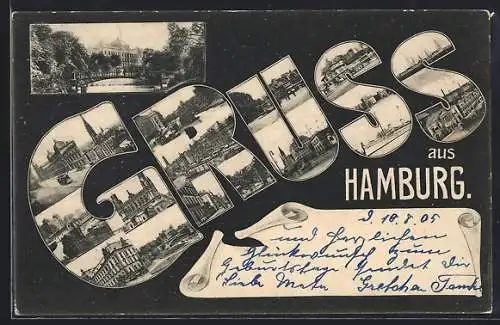 GRUSS
aus
HAMBURG.
d. 18.8.05
und herzlichen
Glückwunsch zum
Geburtstage sendet dir
liebe Gretchen